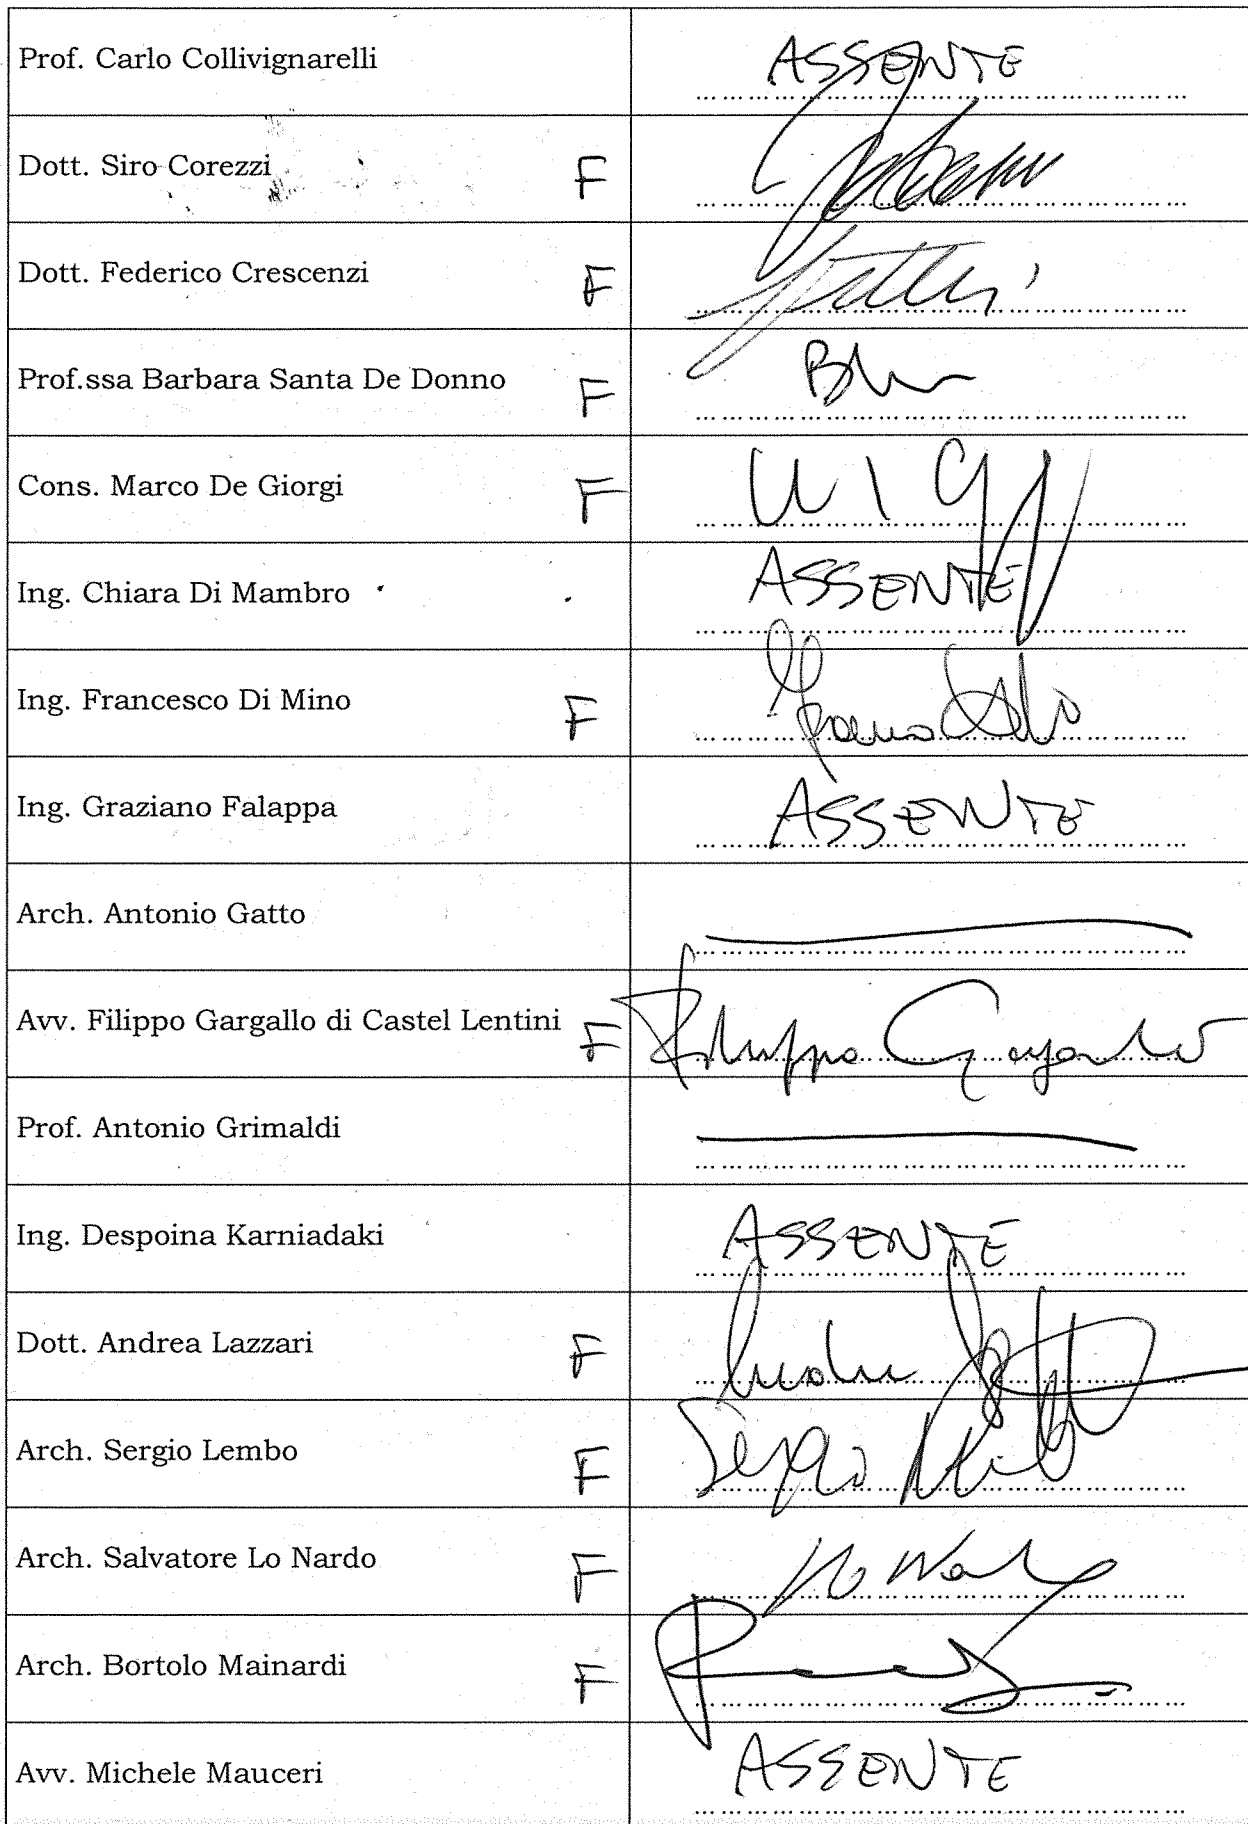 Prof. Carlo Collivignarelli ASSENTE
Dott. Siro Corezzi F
Dott. Federico Crescenzi F
Prof.ssa Barbara Santa De Donno F
Cons. Marco De Giorgi F
Ing. Chiara Di Mambro ASSENTE
Ing. Francesco Di Mino F
Ing. Graziano Falappa ASSENTE
Arch. Antonio Gatto
Avv. Filippo Gargallo di Castel Lentini F Filippo Gargallo
Prof. Antonio Grimaldi
Ing. Despoina Karniadaki ASSENTE
Dott. Andrea Lazzari F
Arch. Sergio Lembo F Sergio
Arch. Salvatore Lo Nardo F
Arch. Bortolo Mainardi F
Avv. Michele Mauceri ASSENTE